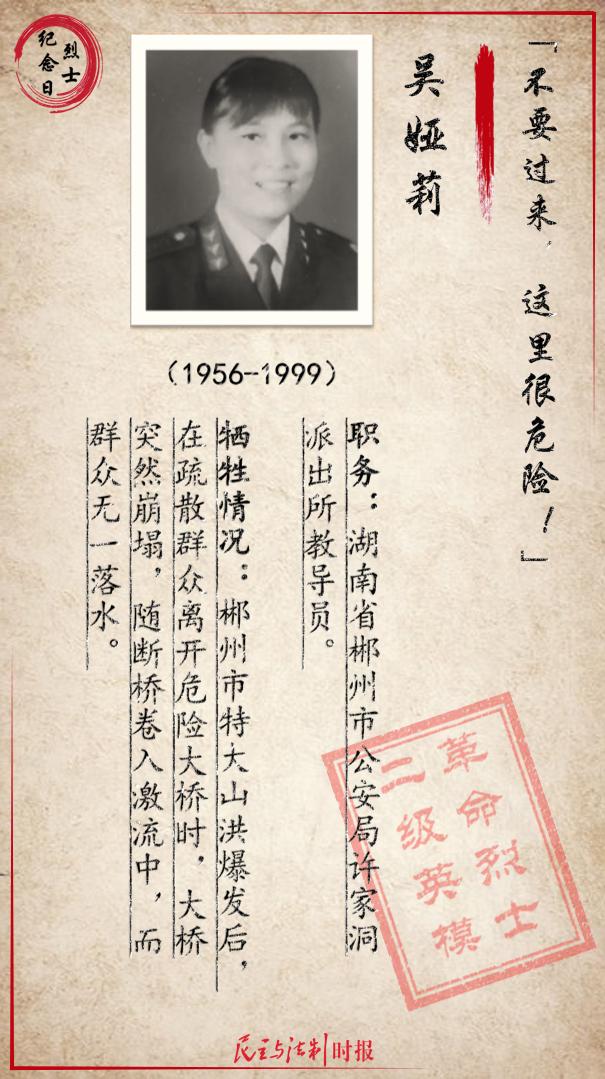 烈士
纪念日
「不要过来，这里很危险！」
吴娅莉
（1956--1999）
职务：湖南省郴州市公安局许家洞
派出所教导员。
牺牲情况：郴州市特大山洪爆发后，
在疏散群众离开危险大桥时，大桥
突然崩塌，随断桥卷入激流中，而
群众无一落水。
革命烈士
二级英模
民主与法制时报